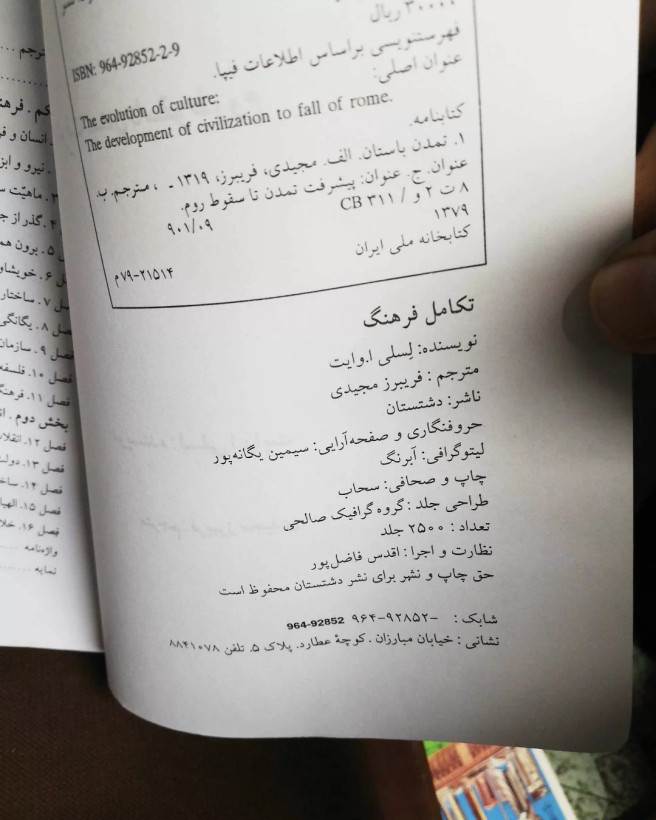 ۳۰۰۰۰ ریال
ISBN: 964-92852-2-9
فهرستنویسی براساس اطلاعات فیپا.
عنوان اصلی:
The evolution of culture:
The development of civilization to fall of rome.
کتابنامه.
۱. تمدن باستان. الف. مجیدی، فریبرز، ۱۳۱۹ - ، مترجم. ب.
عنوان. ج. عنوان: پیشرفت تمدن تا سقوط روم.
۸ ت ۲ و / CB ۳۱۱ ۹۰۱/۰۹
۱۳۷۹
کتابخانه ملی ایران ۷۹-۲۱۵۱۴م
تکامل فرهنگ
نویسنده: لِسلی ا.وایت
مترجم : فریبرز مجیدی
ناشر: دشتستان
حروفنگاری و صفحه‌آرایی: سیمین یگانه‌پور
لیتوگرافی: آبرنگ
چاپ و صحافی: سحاب
طراحی جلد : گروه گرافیک صالحی
تعداد : ۲۵۰۰ جلد
نظارت و اجرا : اقدس فاضل‌پور
حق چاپ و نشر برای نشر دشتستان محفوظ است
شابک : -۹۶۴-۹۲۸۵۲ 964-92852
نشانی : خیابان مبارزان . کوچهٔ عطارد. پلاک ۵. تلفن ۸۸۴۱۰۷۸
ترجم
انسان و فر
نیرو و ابز
۳. ماهیّت س
۴. گذر از ج
۵. برون هم
ل ۶. خویشاو
صل ۷. ساختار
صل ۸. یگانگی
فصل ۹. سازمان
فصل ۱۰. فلسفه
فصل ۱۱. فرهنگ
بخش دوم . انا
فصل ۱۲. انقلاب
فصل ۱۳. دولت
فصل ۱۴. ساخ
فصل ۱۵. الهیا
فصل ۱۶. خلا
واژه‌نامه
نمایه